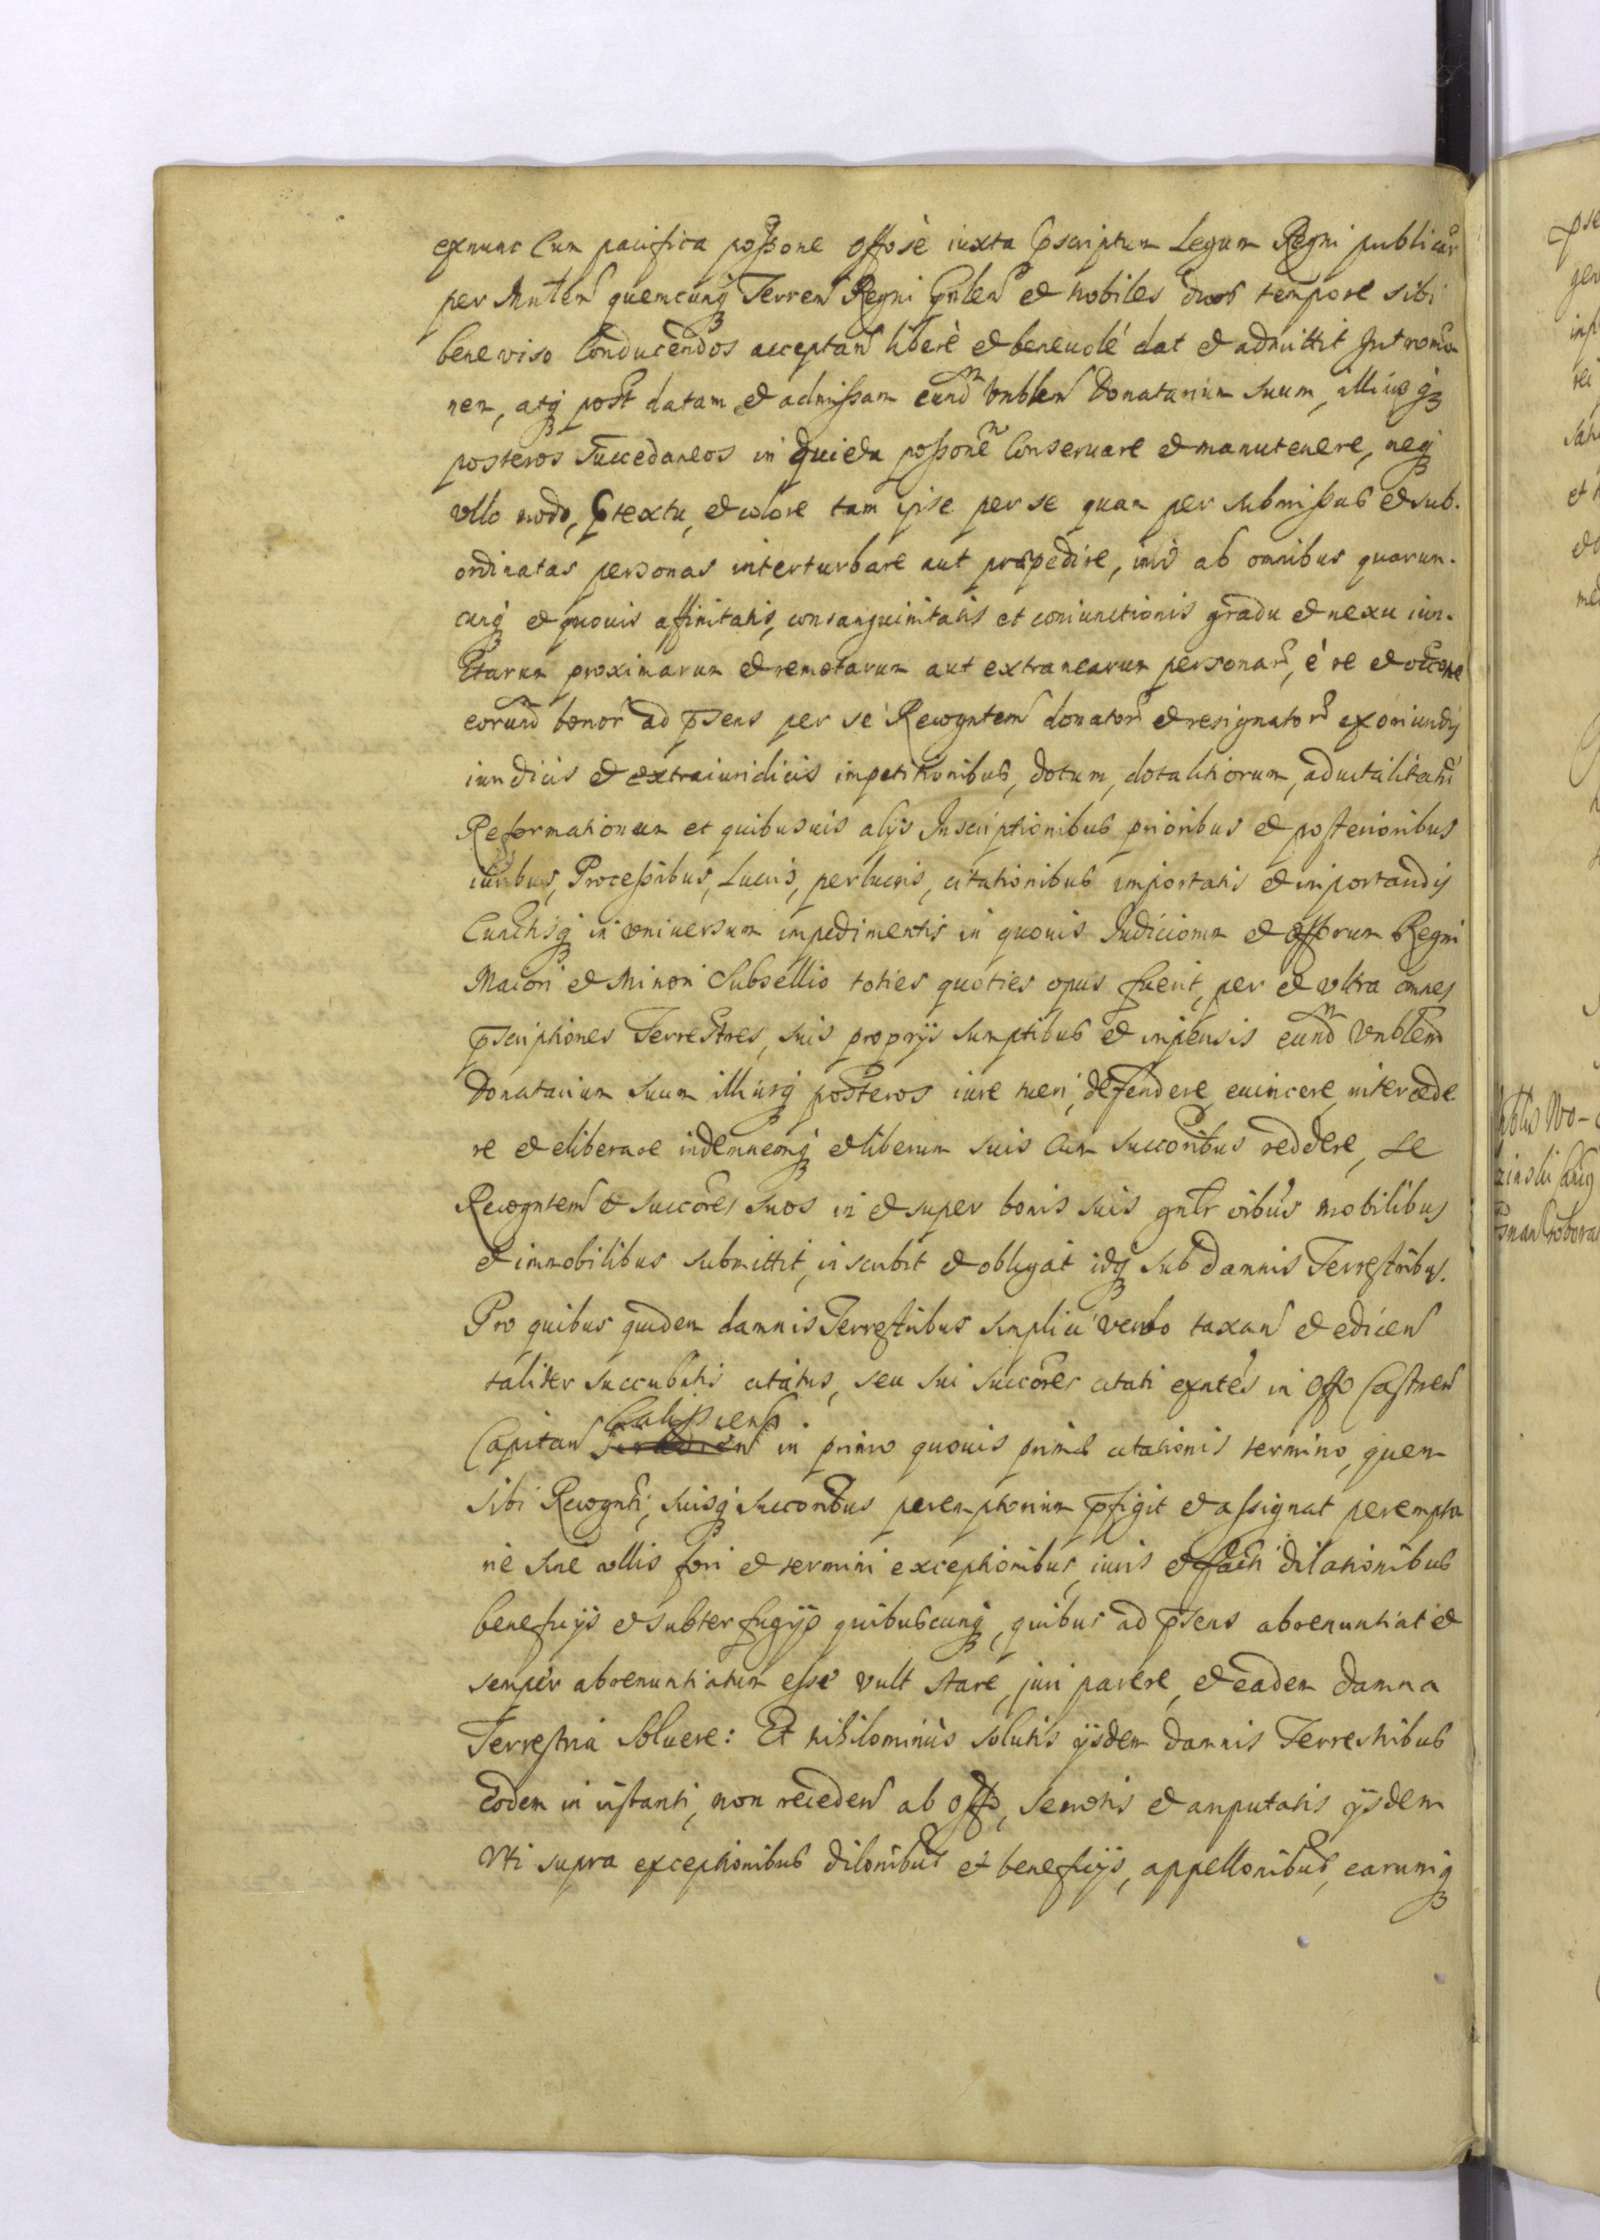 exnunc Cum pacifica possone Offose iuxta pscriptum Legum Regni publicar
per Mnlem quemcunq Terren Regni gnlem et nobiles duos tempore sibi
bene viso Conducendos acceptan libere et beneuole dat et admittit Intromo
nem, atq post datam et admissam eundm Vnblem Donatarium suum, illiusq
posteros Succedaneos in quieta possone Conseruare et manutenere, neq
vllo modo, ptextu, et colore tam ipse per se quam per submissas et sub.
ordinatas personas interturbare aut præpedire, imo ab omnibus quarum.
cunq et quouis affinitatis, consanguinitatis et coniunctionis gradu et nexu iun.
ctarum proximarum et remotarum aut extranearum personar, è re et occone
eorund bonor ad psens per se Recogntem donator et resignator exoriundis
iuridicis et extraiuridicis impetitionibus, dotum, dotalitiorum, aduitalitati
Reformationum et quibusuis alijs Inscriptionibus prioribus et posterioribus
iuribus, Processibus, Lucris, perlucris, citationibus importatis et importandis
Cunctisq in vniuersum impedimentis in quouis Iudiciorum et offorum Regni
Maiori et Minori Subsellio toties quoties opus fuerit, per et vltra omnes
pscriptiones Terrestres, suis proprijs sumptibus et impensis eundm Vnblem
Donatarium suum illiusq posteros iure tueri, defendere, euincere, intercede
re et eliberare indemnemq et liberum suis cum succoribus reddere, se
Recogntem et succores suos in et super bonis suis gnlr oibus mobilibus
et immobilibus submittit, inscribit et obligat idq sub damnis Terrestribus.
Pro quibus quidem damnis Terrestribus simplici verbo taxan et edicen
taliter succubitis citatus, seu sui succores citati exntes in Offo Castren
Capitan Calissiens. in primo quouis primæ citationis termino, quem
sibi Recognti, suisq succoribus peremptorium pfigit et assignat perempto
rie sine vllis fori et termini exceptionibus, iuris et facti dilationibus
beneficijs et subterfugijs quibuscunq, quibus ad psens abrenuntiat et
semper abrenuntiatum esse vult stare, juri parere, et eadem damna
Terrestria soluere: Et nihilominus solutis ijsdem damnis Terrestribus
eodem in instanti, non receden ab Offo, semotis et amputatis ijsdem
Vti supra exceptionibus dilonibus et beneficijs, appellonibus, earumq